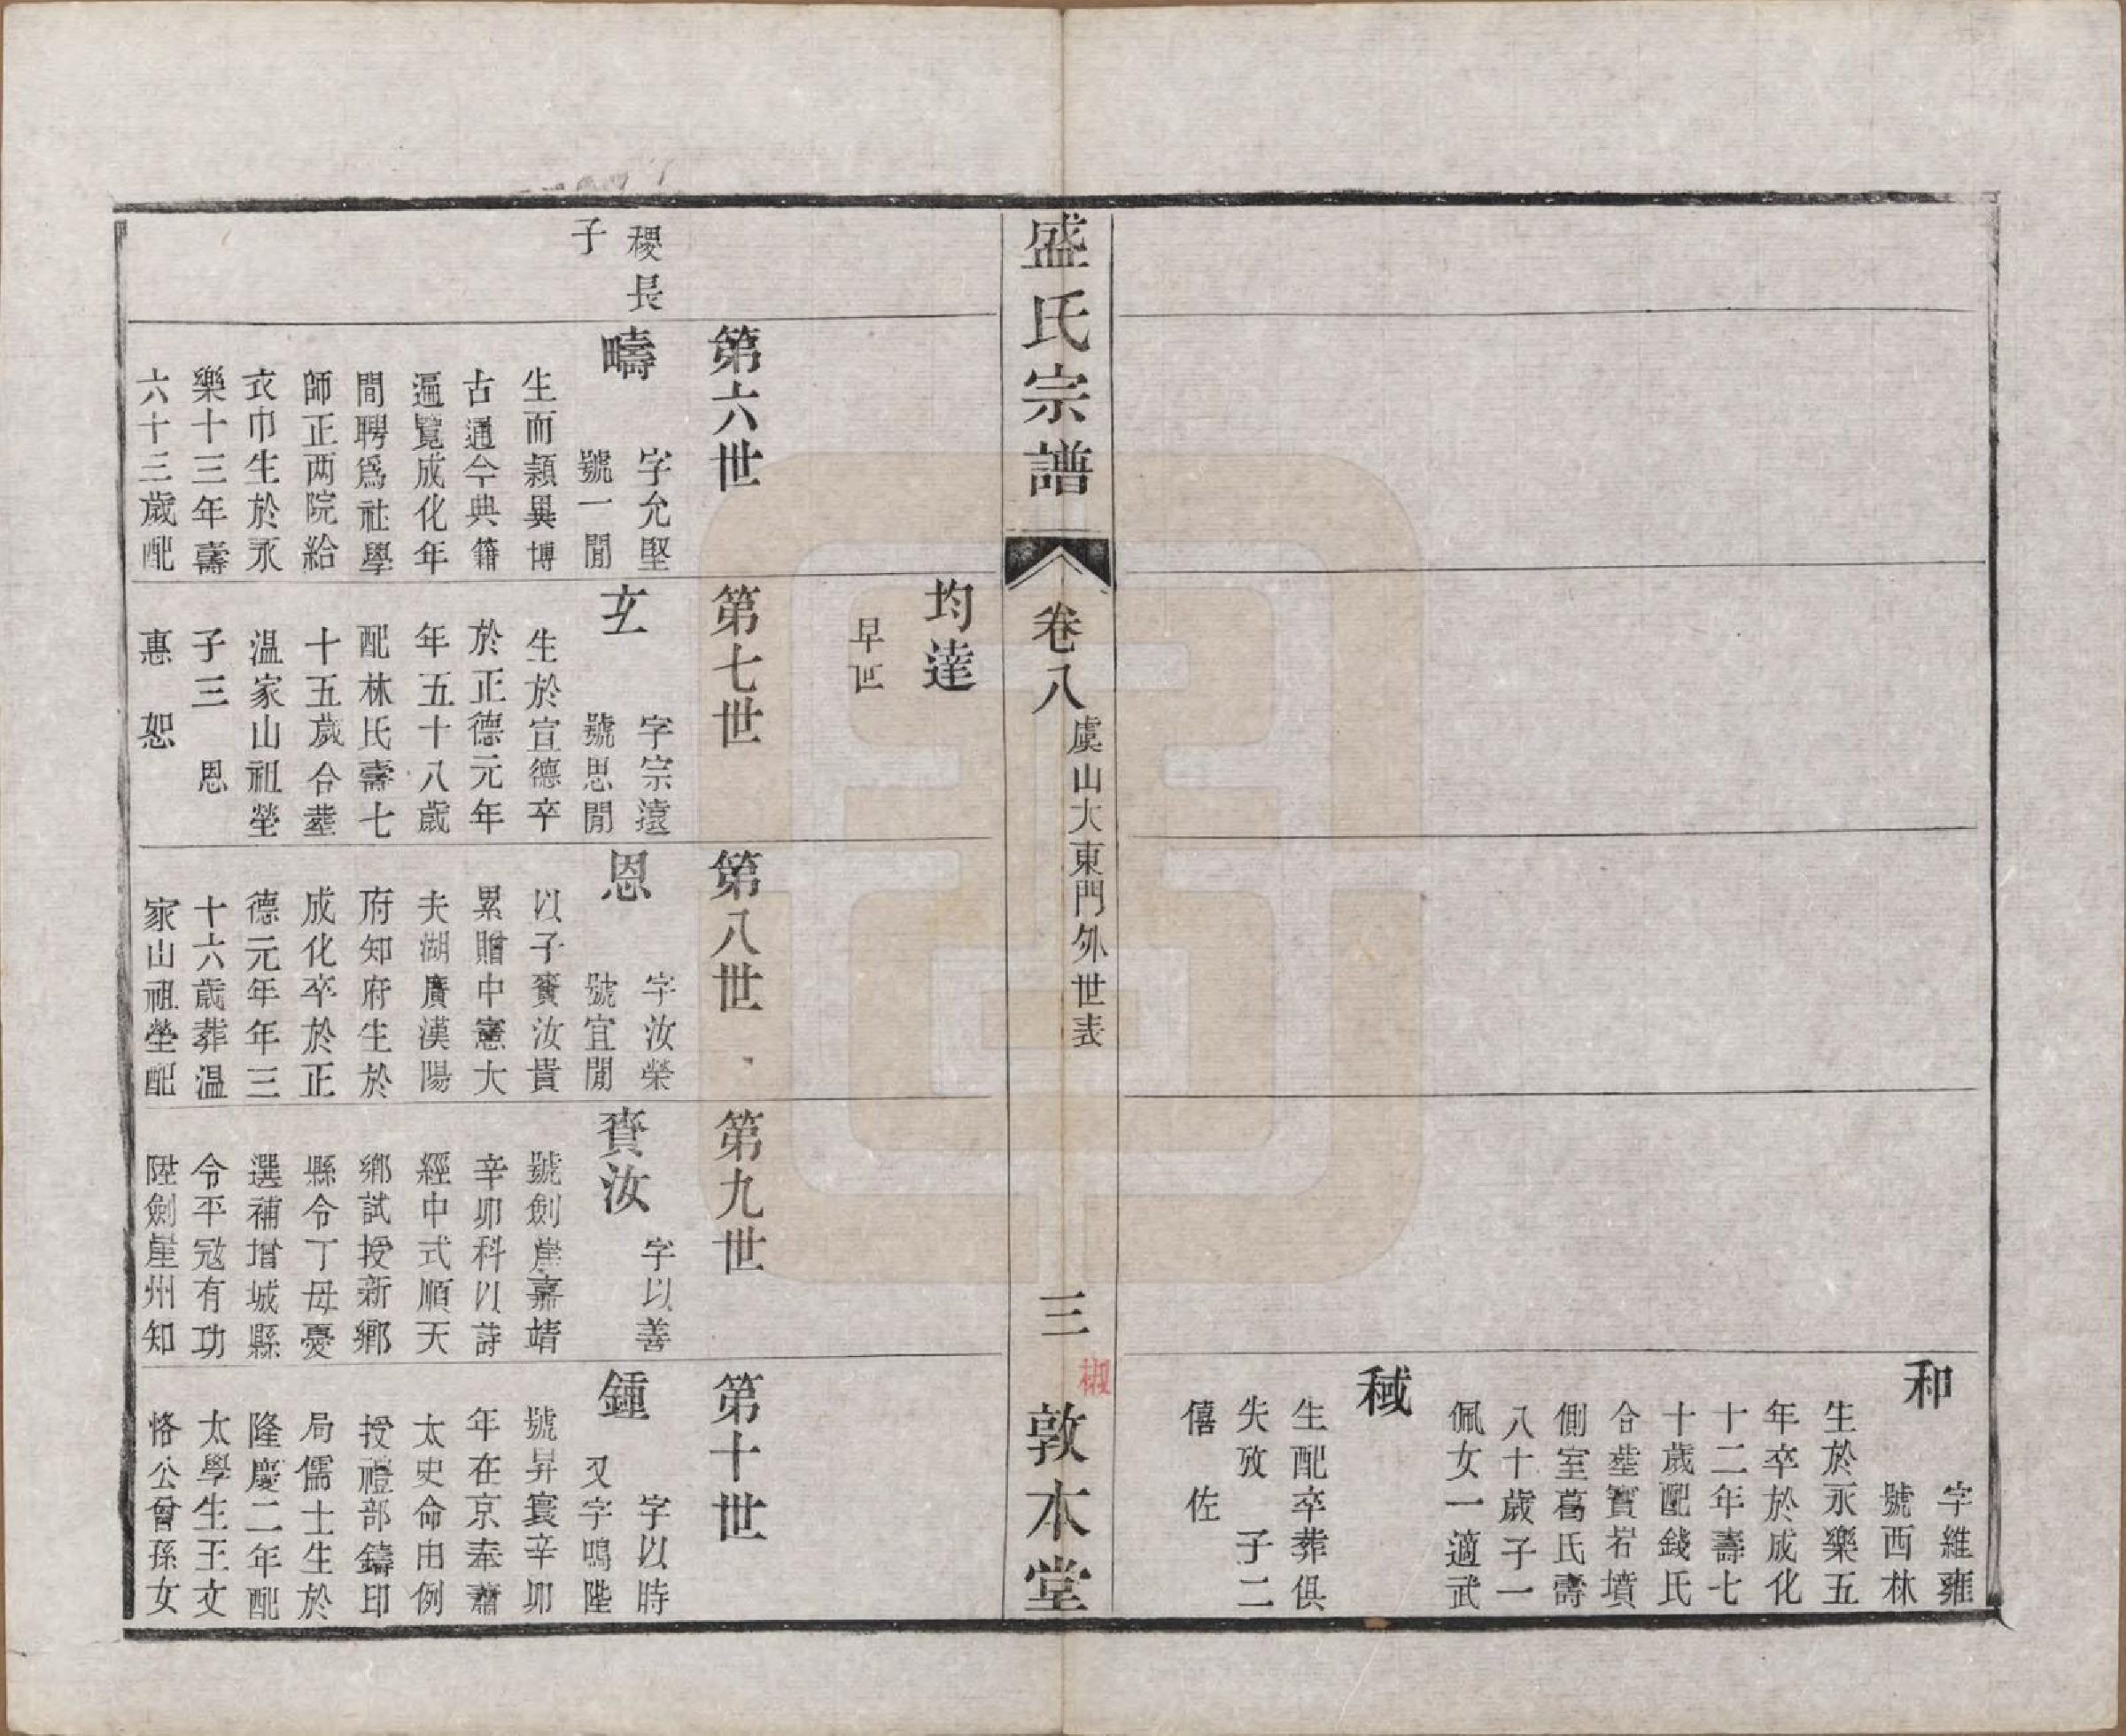 和
字維雍
號西林
生於永樂五
年卒於成化
十二年壽七
十歲配錢氏
合塟寶岩墳
側室葛氏壽
八十歲子一
佩女一適武
稢
生配卒葬俱
失攷 子二
僖 佐
盛氏宗譜
卷八
虞山大東門外世表
三
敦本堂
均達
早世
第六世
第七世
第八世
第九世
第十世
稷長
子
疇
字允堅
號一閒
生而穎異博
古通今典籍
遍覽成化年
間聘爲社學
師正两院給
衣巾生於永
樂十三年壽
六十三歲配
玄
字宗遠
號思閒
生於宣德卒
於正德元年
年五十八歲
配林氏壽七
十五歲合塟
溫家山祖塋
子三 恩
惠 恕
恩
字汝榮
號宜閒
以子賚汝貴
累贈中憲大
夫湖廣漢陽
府知府生於
成化卒於正
德元年年三
十六歲葬溫
家山祖塋配
賚汝
字以善
號劍崖嘉靖
辛卯科以詩
經中式順天
鄉試授新鄉
縣令丁母憂
選補增城縣
令平冦有功
陞劍崖州知
鍾
字以時
又字鳴陛
號昇寰辛卯
年在京奉蕭
太史命由例
授禮部鑄印
局儒士生於
隆慶二年配
太學生王文
恪公曾孫女